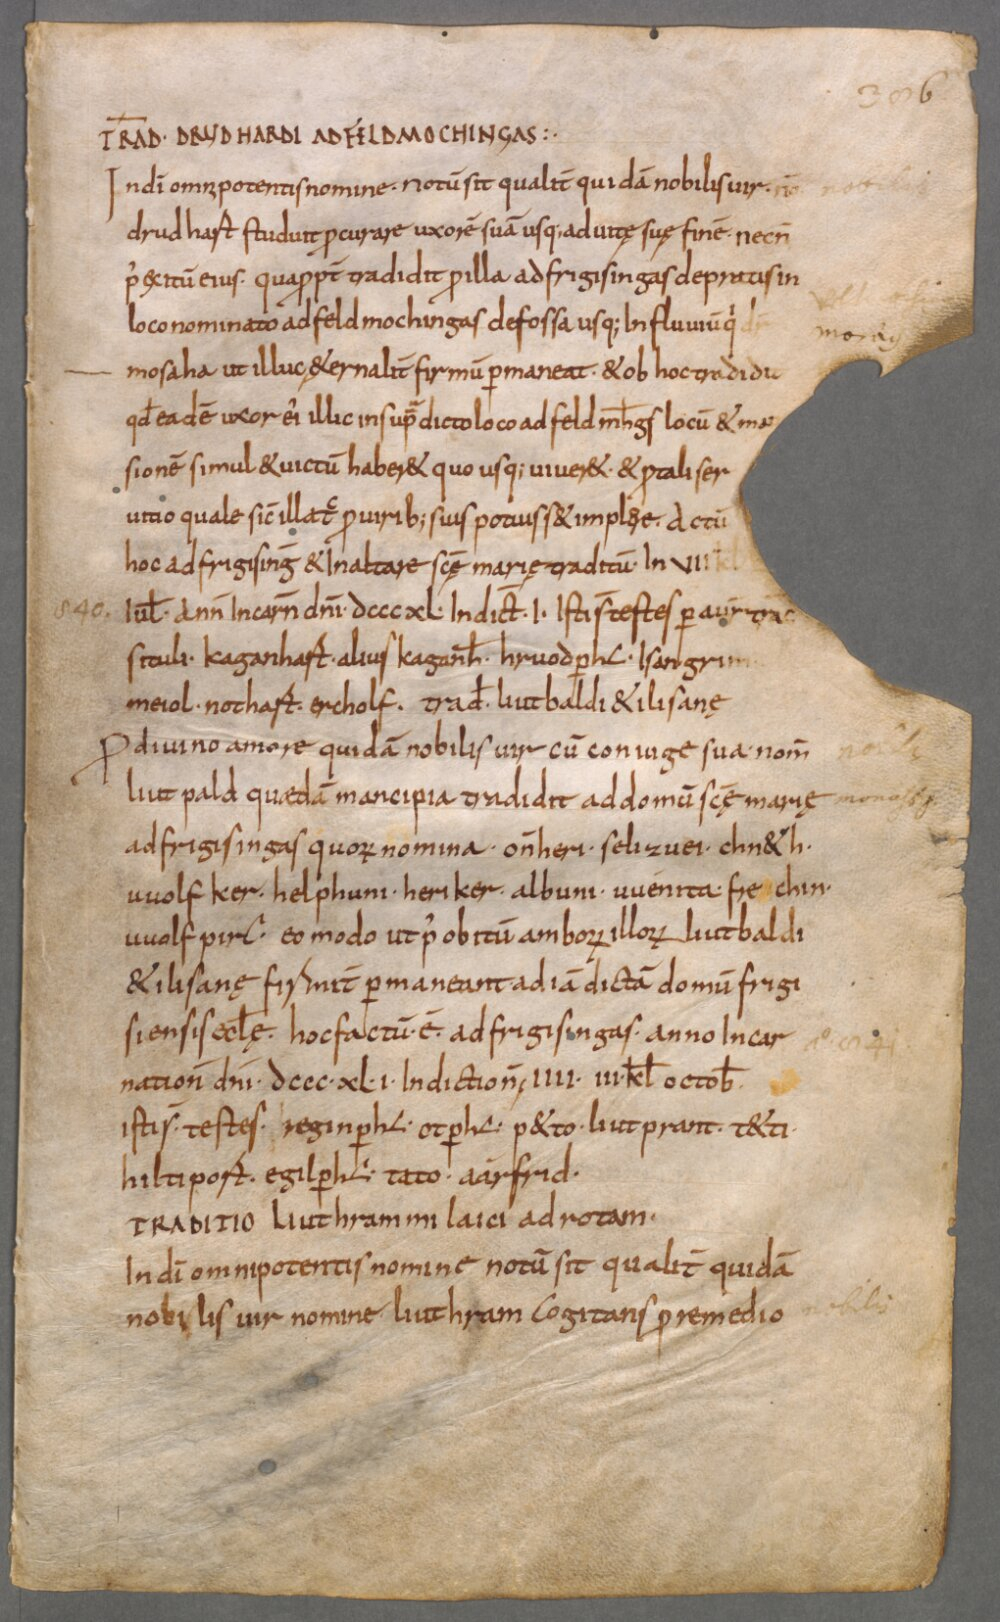 306
TRAD· DRUDHARDI AD FELDMOCHINGAS :·
In dī omnipotentis nomine· notū sit qualit̄ quidā nobilis uir· nō
drudhaft studuit ꝓcurare uxorē suā usq; ad uitę suę finē· necn̄
p̾ exitū eius· quaꝓpt̄ tradidit ꝓ illa ad frigisingas de pratis in
loco nominato ad feldmochingas de fossa usq; In fluuiū q̇
mosaha ut illuc &ernalit̄ firmū ꝑmaneat· & ob hoc tradidit
qd̄ eadē uxor ei̾ illic in sup̄dicto loco ad feldm̄hgs locū & man
sionē simul & uictū haber& quo usq; uiuer&· & ꝓ tali ser
uitio quale sic̄ illa t̄c ꝓ uirib; suis potuiss& implere· Actū
hoc ad frigisinḡ & In altare scę̄ marię traditū· In VII kl
Iul̄· Ann̄ Incarn̄ dn̄i· dccc xl· Indict̄· I· Isti s̄ testes ꝑ aur̄ trac
situli· kaganhart· alius kaganh̄· hruodꝑht· Isangrim
meiol· nothaft· ercholf· Trad̄· liutbaldi & ilisanę
840·
Ꝓ diuino amore quidā nobilis uir cū coniuge sua· nom̄
liutpald quædā mancipia tradidit ad domū scę̄ marię
ad frigisingas quoꝝ nomina· on̄heri· selizuei· chn&h·
uuolfker· helphuni· heriker· albuni· uuenita· fre chin·
uuolfpirc· eo modo ut p̾ obitū amboꝝ illoꝝ liutbaldi
& ilisanę firmit̄ ꝑmaneant ad iā dictā domū frigi
siensis eclę̄· hoc factū· ē· ad frigisingas· anno Incar
nation̄ dn̄i· dccc·xl·i· Indiction̄ę IIII· III· kl̄ octob̄·
isti s̄· testes· reginꝑht· otꝑht· p&to· liutprant· t&ti·
hiltiport· egilꝑht· tato· aarfrid·
TRADITIO Liuthrammi laici ad rotam·
In dī omnipotentis nomine notū sit qualit̄ quidā
nobilis uir nomine liuthram Cogitans ꝓ remedio
nobilis